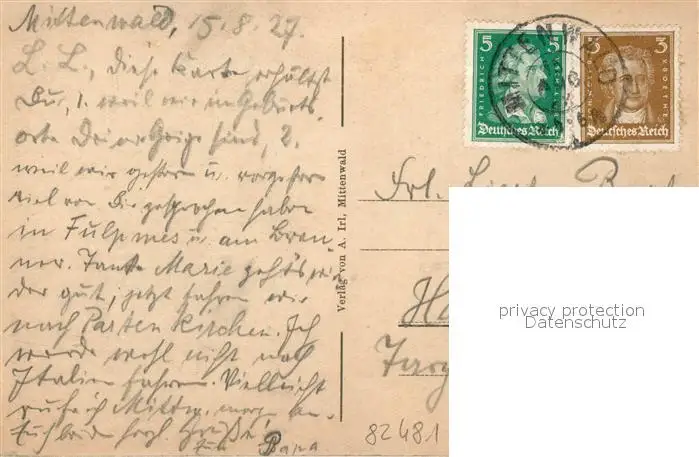 Mittenwald, 15.8.27.
L. L., diese Karte erhältst
Du, 1. weil wir im Geburts-
orte Deiner Geige sind, 2.
weil wir gestern u. vorgestern
viel von Dir gesprochen haben
in Fulpmes u. am Bren-
ner. Tante Marie geht's wie
der gut, jetzt fahren wir
nach Partenkirchen. Ich
werde wohl nicht nach
Italien fahren. Vielleicht
rufe ich Mittw. morg. an.
Euch beiden herzl. Grüße!
Papa
Verlag von A. Irl, Mittenwald
5 5
FRIEDRICH
Deutsches Reich
3 3
Deutsches Reich
MITTENWALD
Frl.
82481
privacy protection
Datenschutz